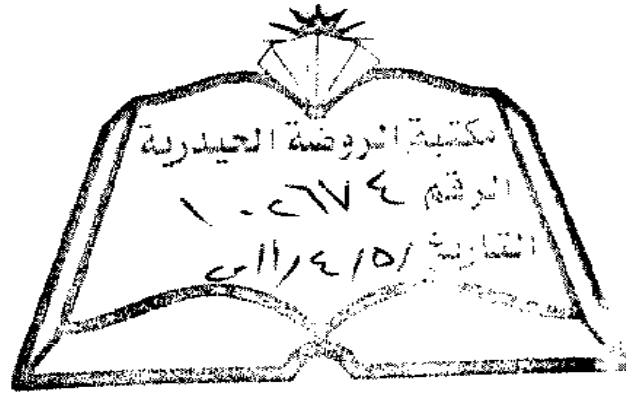 مكتبة الروضة الحيدرية
الرقم ١٠٢٦٧٤
التاريخ